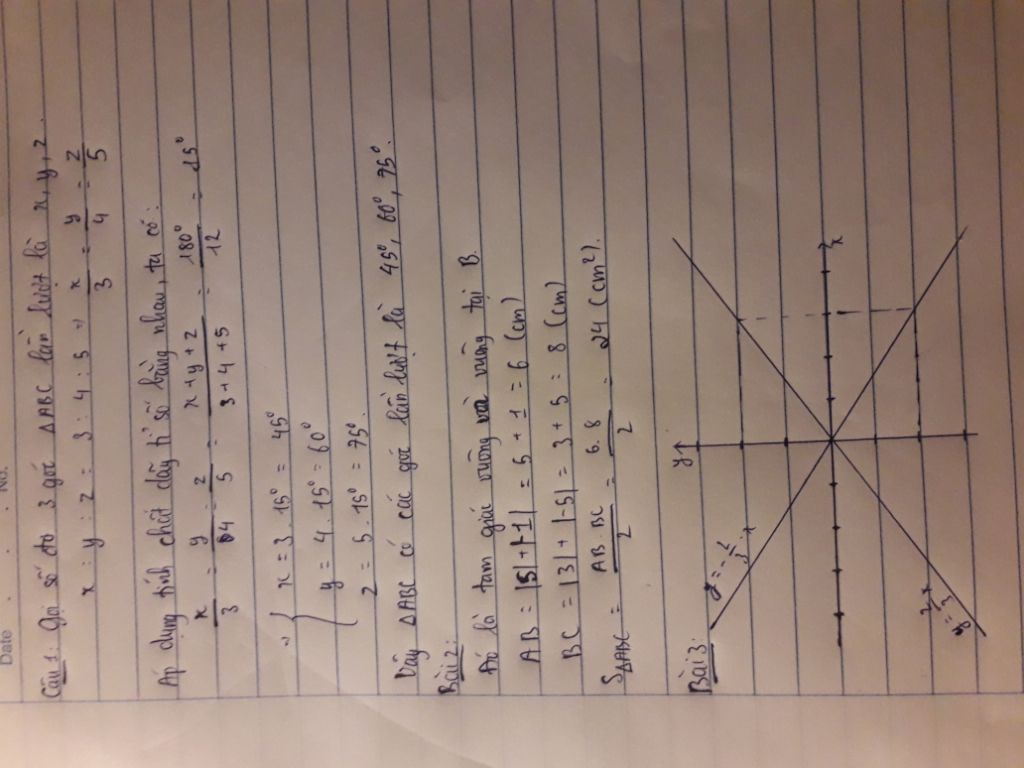 Date . . . No.
Câu 1: Gọi số đo 3 góc ΔABC lần lượt là x, y, z.
x : y : z = 3 : 4 : 5 => x/3 = y/4 = z/5
Áp dụng tính chất dãy tỉ số bằng nhau, ta có:
x/3 = y/4 = z/5 = (x+y+z)/(3+4+5) = 180°/12 = 15°
=> { x = 3 . 15° = 45°
y = 4 . 15° = 60°
z = 5 . 15° = 75°.
Vậy ΔABC có các góc lần lượt là 45°, 60°, 75°.
Bài 2:
Đó là tam giác vuông vuông tại B.
AB = |5|+|-1| = 5 + 1 = 6 (cm)
BC = |3| + |-5| = 3 + 5 = 8 (cm)
SΔABC = AB.BC/2 = 6.8/2 = 24 (cm²).
Bài 3:
y
x
y = -2/3 . x
y = 2/3 x